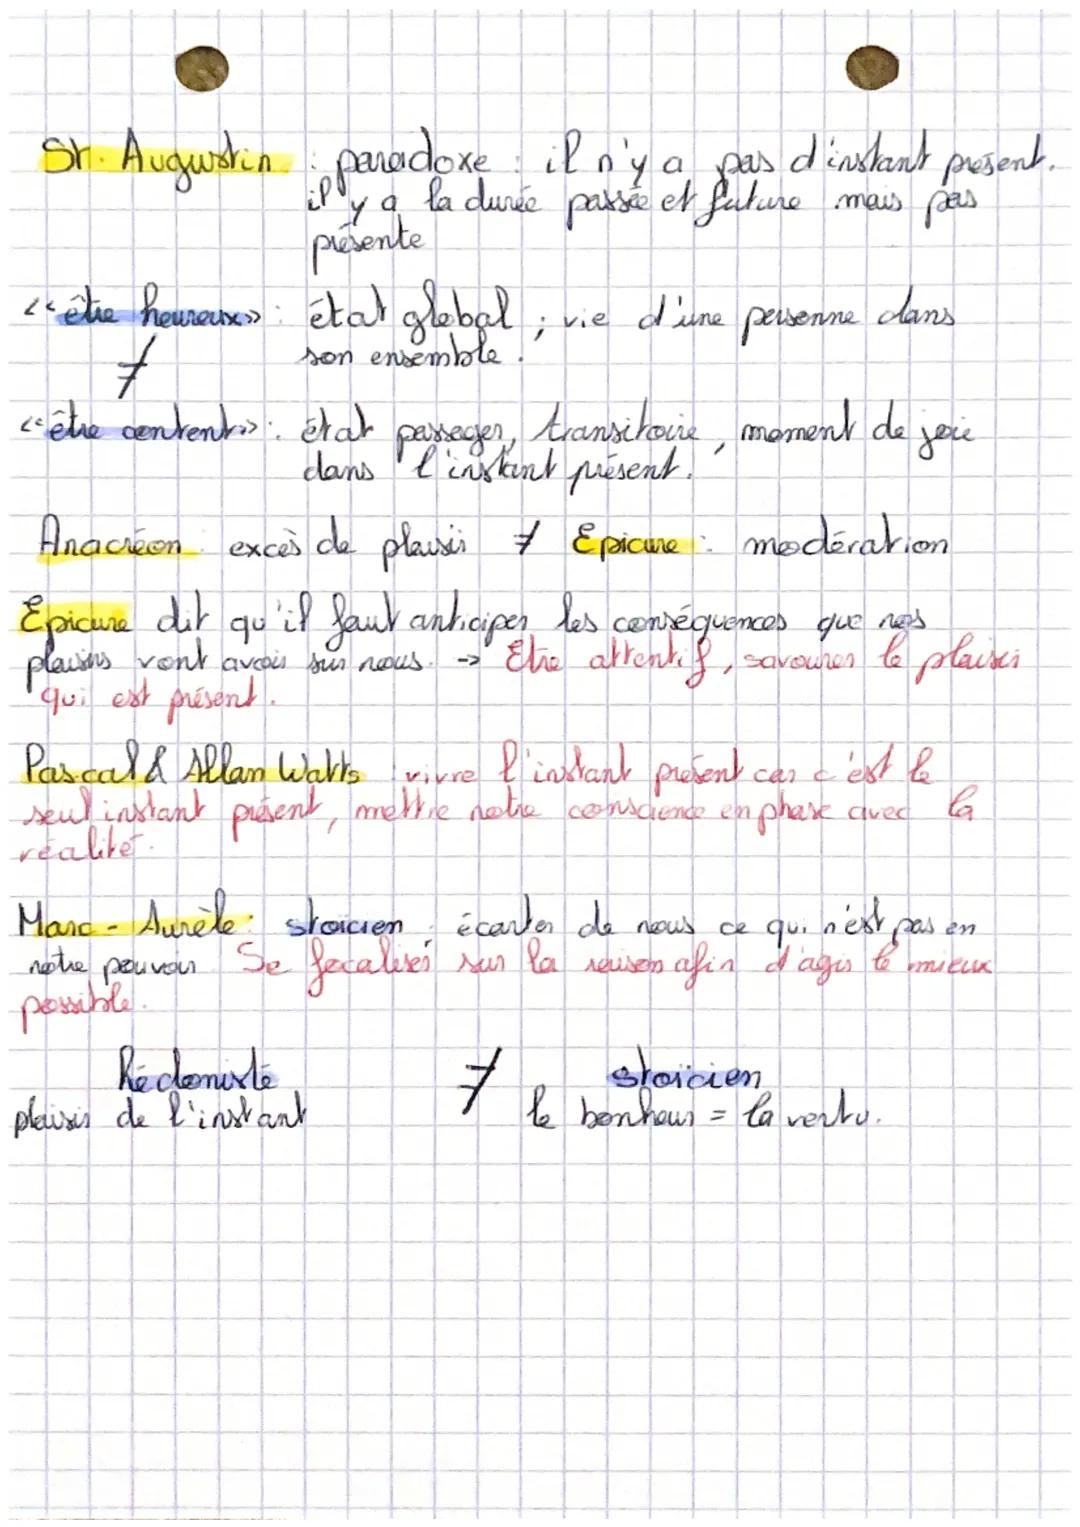 St. Augustin : paradoxe : il n'y a pas d'instant présent.
il y a la durée passée et future mais pas
présente
<< être heureux >> : état global ; vie d'une personne dans
son ensemble.
≠
<< être content >> : état passager, transitoire, moment de joie
dans l'instant présent.
Anacréon : excès de plaisir ≠ Epicure : modération
Epicure dit qu'il faut anticiper les conséquences que nos
plaisirs vont avoir sur nous. -> Etre attentif, savourer le plaisir
qui est présent.
Pascal & Allan Watts : vivre l'instant présent car c'est le
seul instant présent, mettre notre conscience en phase avec la
réalité.
Marc-Aurèle : stoïcien écarter de nous ce qui n'est pas en
notre pouvoir Se focaliser sur la raison afin d'agir le mieux
possible.
hédoniste ≠ stoïcien
plaisir de l'instant le bonheur = la vertu.